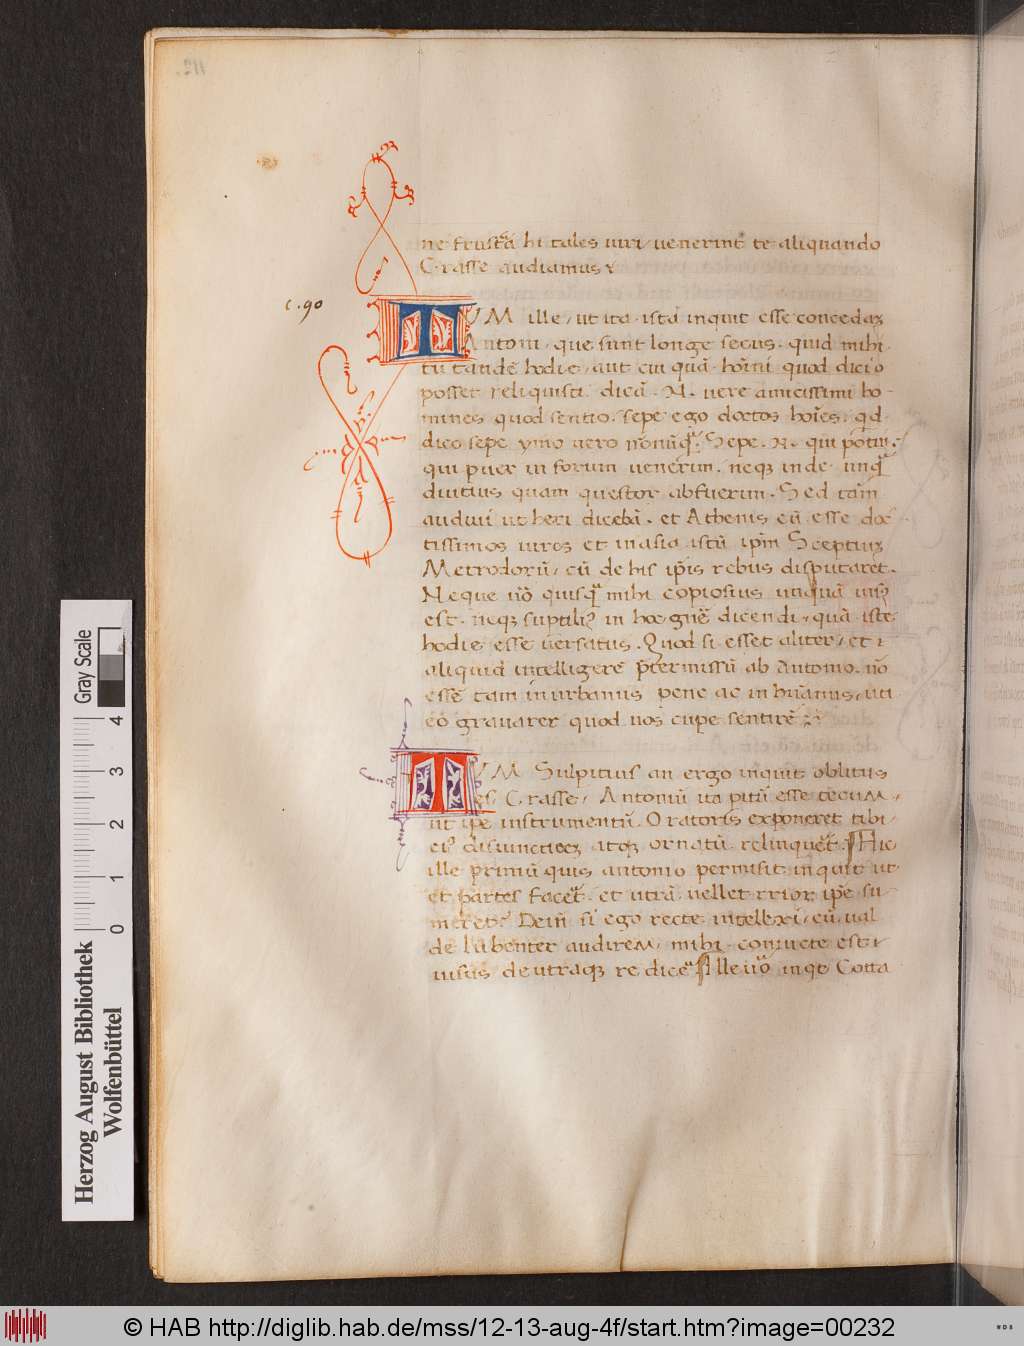 112.
ne frustrā hi tales uiri uenerint te aliquando
Crasse audiamus
c. 90
TVM ille, ut ita ista inquit esse concedaꝫ
Antoni, que sunt longe secus. quid mihi
tu tandē hodie, aut cui quā hoīni quod dici
posset reliquisti. dicā. N. uere amicissimi ho-
mines quod sentio. sepe ego doctos hoīes. qd
dico sepe ymo uero nōnūq̄. Sepe. N. qui potui.
qui puer in forum uenerim. neqꝫ inde unq̄
diutius quam questor abfuerim. Sed tām
audiui ut heri dicebā. et Athenis cū esse doc
tissimos uiros et in asia istū ip̄m Sceptiuꝫ
Metrodorū, cū de his ip̄is rebus disputaret.
Neque uō quisq̄ mihi copiosius unquā uisꝰ
est. neqꝫ suptiliꝰ in hoc gn̄e dicendi, quā iste
hodie esse uersatus. Quod si esset aliter, et
aliquid intelligerē p̄termissū ab Antonio. nō
essē tam inurbanus pene ac inhūanus, ut
eō grauarer quod uos cupe sentirē
TVM Sulpitius an ergo inquit oblitus
es Crasse, Antoniū ita pitū esse tecuM,
ut ip̄e instrumentū Oratoris exponeret tibi
eiꝰ distinctioeꝫ atqꝫ ornatū relinqueret. Hic
ille primū quis antonio permisit inquit ut
et partes facēt. et utrā uellet prior ip̄e su-
meret? Dein̄ si ego recte intellexi, cū ual
de lubenter audireM, mihi coniucte est
uisus de utraqꝫ re dicē Ille uō inqt Cotta
Herzog August Bibliothek
Wolfenbüttel
0 1 2 3 4
Gray Scale
© HAB http://diglib.hab.de/mss/12-13-aug-4f/start.htm?image=00232